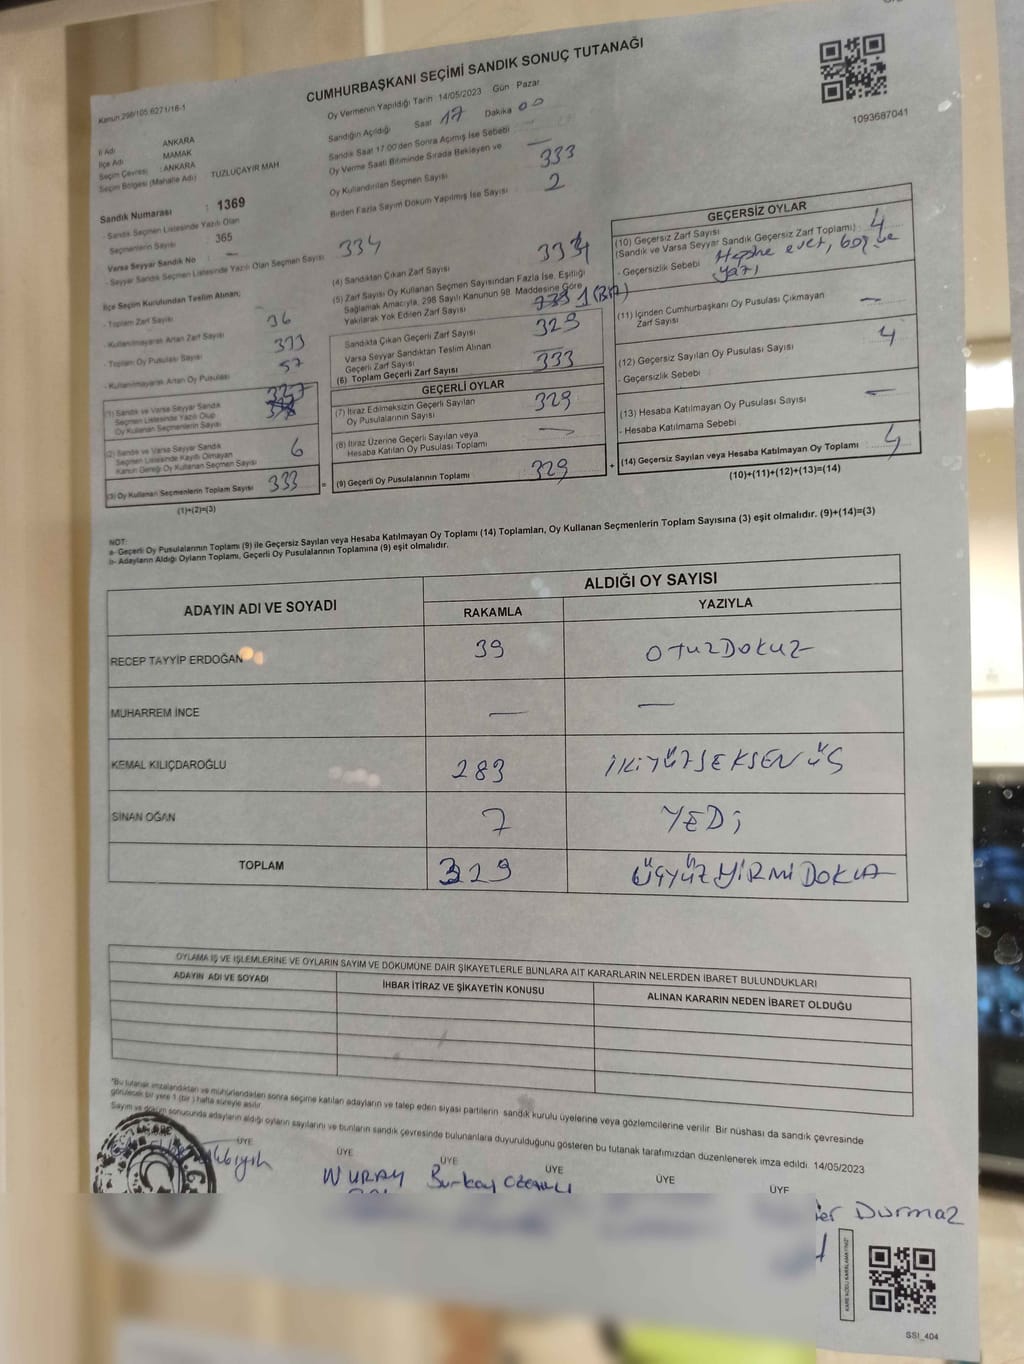 CUMHURBAŞKANI SEÇİMİ SANDIK SONUÇ TUTANAĞI
Kanun:298/105.6271/18-1
Oy Vermenin Yapıldığı Tarih 14/05/2023 Gün Pazar
1093687041
İl Adı ANKARA
İlçe Adı MAMAK
Seçim Çevresi : ANKARA
Seçim Bölgesi (Mahalle Adı) TUZLUÇAYIR MAH
Sandık Numarası : 1369
- Sandık Seçmen Listesinde Yazılı Olan
Seçmenlerin Sayısı : 365
Varsa Seyyar Sandık No : —
- Seyyar Sandık Seçmen Listesinde Yazılı Olan Seçmen Sayısı
Sandığın Açıldığı Saat 17 Dakika 00
Sandık Saat 17:00'den Sonra Açılmış İse Sebebi
Oy Verme Saati Bitiminde Sırada Bekleyen ve —
Oy Kullandırılan Seçmen Sayısı 333
Birden Fazla Sayım Döküm Yapılmış İse Sayısı 2
İlçe Seçim Kurulundan Teslim Alınan;
334
- Toplam Zarf Sayısı
- Kullanılmayarak Artan Zarf Sayısı 36
- Toplam Oy Pusulası Sayısı
- Kullanılmayarak Artan Oy Pusulası 57
(1) Sandık ve Varsa Seyyar Sandık
Seçmen Listesinde Yazılı Olup
Oy Kullanan Seçmenlerin Sayısı 327
(2) Sandık ve Varsa Seyyar Sandık
Seçmen Listesinde Kayıtlı Olmayan
Kanun Gereği Oy Kullanan Seçmen Sayısı 6
(3) Oy Kullanan Seçmenlerin Toplam Sayısı 333
(1)+(2)=(3)
(4) Sandıktan Çıkan Zarf Sayısı 334
(5) Zarf Sayısı Oy Kullanan Seçmen Sayısından Fazla İse, Eşitliği
Sağlamak Amacıyla, 298 Sayılı Kanunun 98. Maddesine Göre
Yakılarak Yok Edilen Zarf Sayısı 1 (BİR)
Sandıkta Çıkan Geçerli Zarf Sayısı 329
Varsa Seyyar Sandıktan Teslim Alınan
Geçerli Zarf Sayısı —
(6) Toplam Geçerli Zarf Sayısı 333
GEÇERLİ OYLAR
(7) İtiraz Edilmeksizin Geçerli Sayılan
Oy Pusulalarının Sayısı 329
(8) İtiraz Üzerine Geçerli Sayılan veya
Hesaba Katılan Oy Pusulası Toplamı —
(9) Geçerli Oy Pusulalarının Toplamı 329
GEÇERSİZ OYLAR
(10) Geçersiz Zarf Sayısı 4
(Sandık ve Varsa Seyyar Sandık Geçersiz Zarf Toplamı) :
- Geçersizlik Sebebi evet, boş ve
yazı
(11) İçinden Cumhurbaşkanı Oy Pusulası Çıkmayan
Zarf Sayısı —
(12) Geçersiz Sayılan Oy Pusulası Sayısı 4
- Geçersizlik Sebebi
(13) Hesaba Katılmayan Oy Pusulası Sayısı —
- Hesaba Katılmama Sebebi
+ (14) Geçersiz Sayılan veya Hesaba Katılmayan Oy Toplamı 4
(10)+(11)+(12)+(13)=(14)
NOT:
a- Geçerli Oy Pusulalarının Toplamı (9) ile Geçersiz Sayılan veya Hesaba Katılmayan Oy Toplamı (14) Toplamları, Oy Kullanan Seçmenlerin Toplam Sayısına (3) eşit olmalıdır. (9)+(14)=(3)
b- Adayların Aldığı Oyların Toplamı, Geçerli Oy Pusulalarının Toplamına (9) eşit olmalıdır.
ADAYIN ADI VE SOYADI
ALDIĞI OY SAYISI
RAKAMLA YAZIYLA
RECEP TAYYİP ERDOĞAN 39 OTUZDOKUZ
MUHARREM İNCE — —
KEMAL KILIÇDAROĞLU 283 İKİYÜZSEKSENÜÇ
SİNAN OĞAN 7 YEDİ
TOPLAM 329 ÜÇYÜZYİRMİDOKUZ
OYLAMA İŞ VE İŞLEMLERİNE VE OYLARIN SAYIM VE DÖKÜMÜNE DAİR ŞİKAYETLERLE BUNLARA AİT KARARLARIN NELERDEN İBARET BULUNDUKLARI
ADAYIN ADI VE SOYADI İHBAR İTİRAZ VE ŞİKAYETİN KONUSU ALINAN KARARIN NEDEN İBARET OLDUĞU
*Bu tutanak imzalandıktan ve mühürlendikten sonra seçime katılan adayların ve talep eden siyasi partilerin sandık kurulu üyelerine veya gözlemcilerine verilir. Bir nüshası da sandık çevresinde
görülecek bir yere 1 (bir) hafta süreyle asılır.
Sayım ve döküm sonucunda adayların aldığı oyların sayılarını ve bunların sandık çevresinde bulunanlara duyurulduğunu gösteren bu tutanak tarafımızdan düzenlenerek imza edildi. 14/05/2023
ÜYE ÜYE ÜYE ÜYE ÜYE ÜYE
NURAY Burkay
Durmaz
SSİ_404